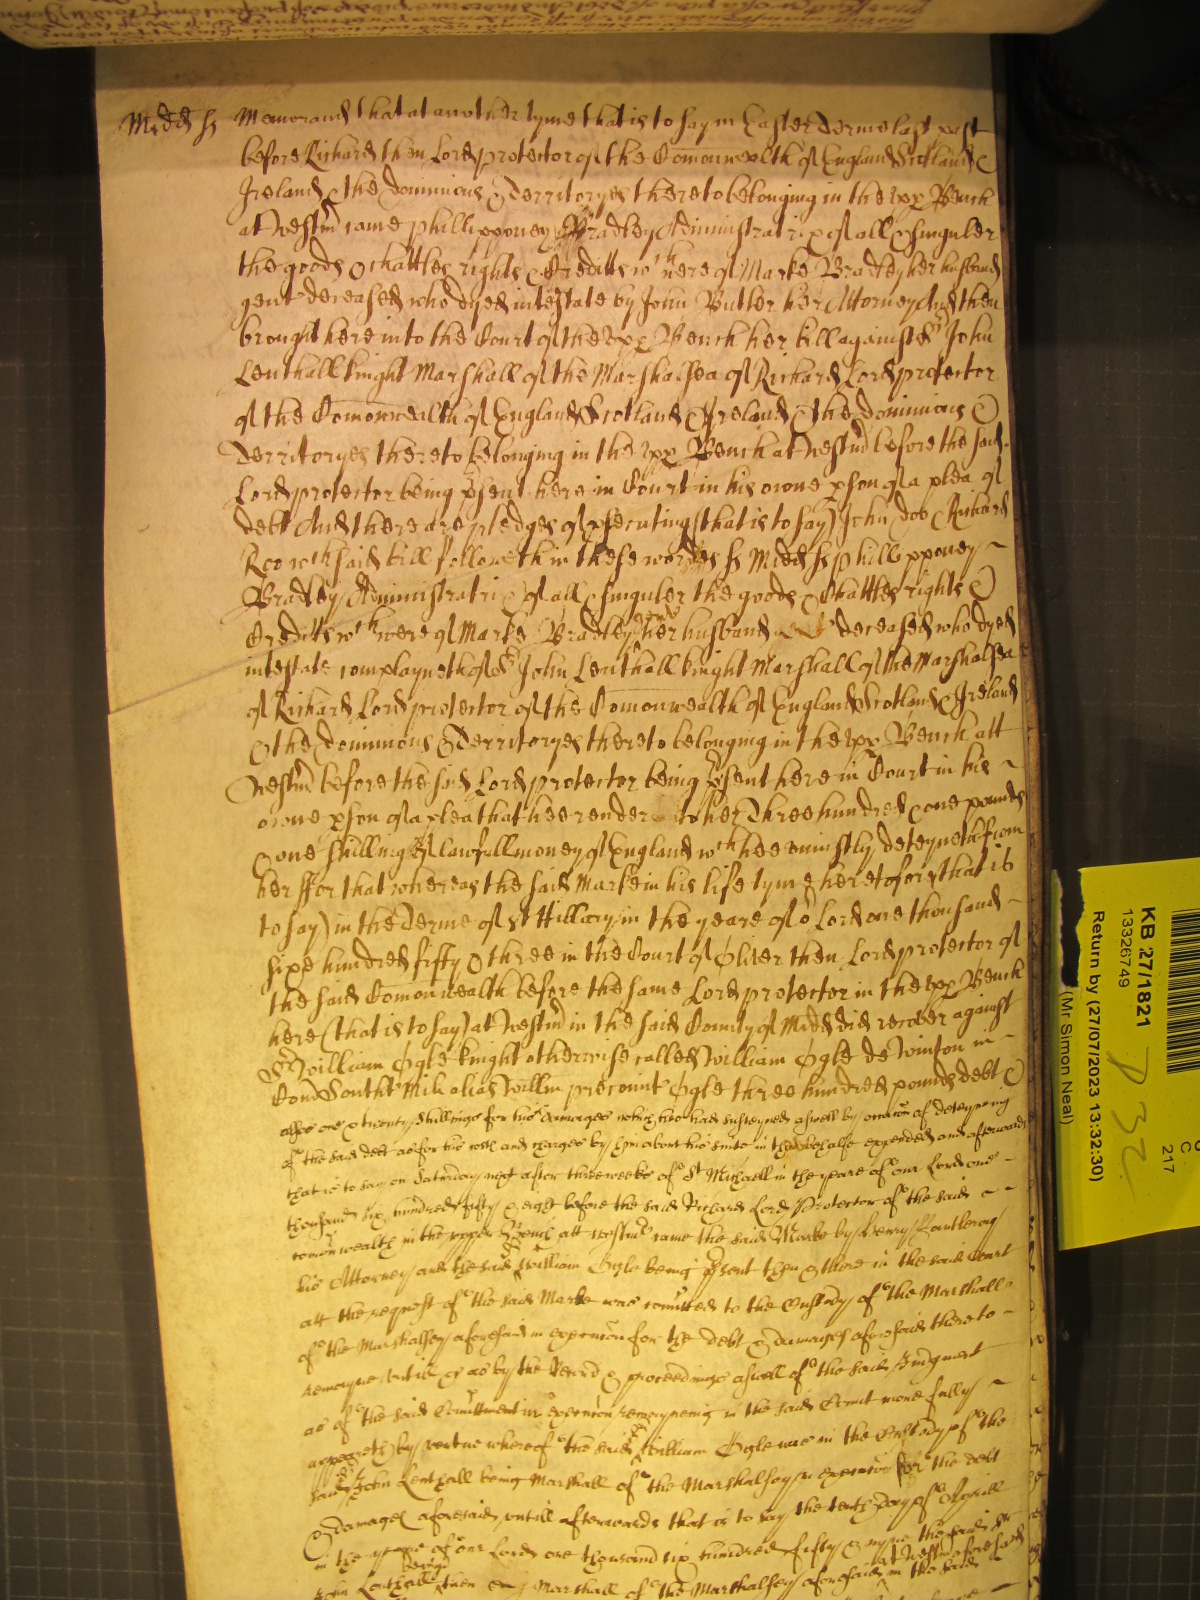 Midd ss Memorand that at another tyme that is to say in Easter Terme last past
before Richard then Lord protector of the Comonwealth of England Scotland &
Ireland & the Dominions & Territoryes thereto belonging in the upp Bench
at Westm came Phillipponey Bradley Administratrix of all & singuler
the goods & chattles rights & Creditts wch were of Marke Bradley her husband
gent deceased who dyed intestate by John Butler her Attorney And then
brought here into the Court of the upp Bench her bill against Sr John
Lenthall knight Marshall of the Marshalsea of Richard Lord protector
of the Comonwealth of England Scotland & Ireland & the Dominions &
Territoryes thereto belonging in the upp Bench at Westm before the said
Lord protector being psent here in Court in his owne pson of a plea of
debt And there are pledges of psecuting (that is to say) John Doe & Richard
Roe wch said bill followeth in these wordes ss Midd ss Phillipponey
Bradley Administratrix of all & singuler the goods & Chattles rights &
Creditts wch were of Marke Bradley gent her husband deceased who dyed
intestate complayneth of Sr John Lenthall knight Marshall of the Marshalsea
of Richard Lord protector of the Comonwealth of England Scotland & Ireland
& the Dominions & Territoryes thereto belonging in the upp Bench att
Westm before the said Lord protector being psent here in Court in his
owne pson of a plea that hee render to her Three hundred & one pounds
& one shilling of lawfull money of England wch hee uniustly deteyneth from
her ffor that whereas the said Marke in his life tyme heretofore (that is
to say) in the Terme of St Hillary in the yeare of or Lord one thousand
sixe hundred fifty & three in the Court of Oliver then Lord protector of
the said Comonwealth before the same Lord protector in the upp Bench
here (that is to say) at Westm in the said County of Midd did recover against
Sr William Ogle knight otherwise called William Ogle de Winton in
Com Southt Mil alias Willm Viscount Ogle three hundred pounds debt &
alsoe one & twenty shillings for his damages which hee had susteyned aswell by occacon of deteyning
of the said debt as for his costs and charges by him about his suite in that behalfe expended and afterwards
that is to say on Saturday next after three weekes of St Michaell in the yeare of our Lord one
thousand six hundred fifty & eight before the said Richard Lord Protector of the said
comonwealth in the upper Bench att Westmr came the said Marke by Henry
his Attorney and the said Sr William Ogle being psent then & there in the said Court
att the request of the said Marke was comitted to the Custody of the Marshall
of the Marshalsey aforesaid in execucon for the debt & damages aforesaid there to
remayne untill &c as by the Record & proceedings aswell of the said Judgment
as of the said Comittment in execucon remayneing in the said Court more fully
appeareth by vertue whereof the said Sr William Ogle was in the Custody of the
said Sr John Lenthall being Marshall of the Marshalsey in execucon for the debt
& damages aforesaid untill afterwards that is to say the tenth day of Aprill
in the yeare of our Lord one thousand six hundred fifty & nyne the said Sr
John Lenthall being then Marshall of the Marshalsey aforesaid at Westm aforesaid in the said
KB 27/1821
13326749
Return by (27/07/2023 13:32:30)
(Mr Simon Neal)
217